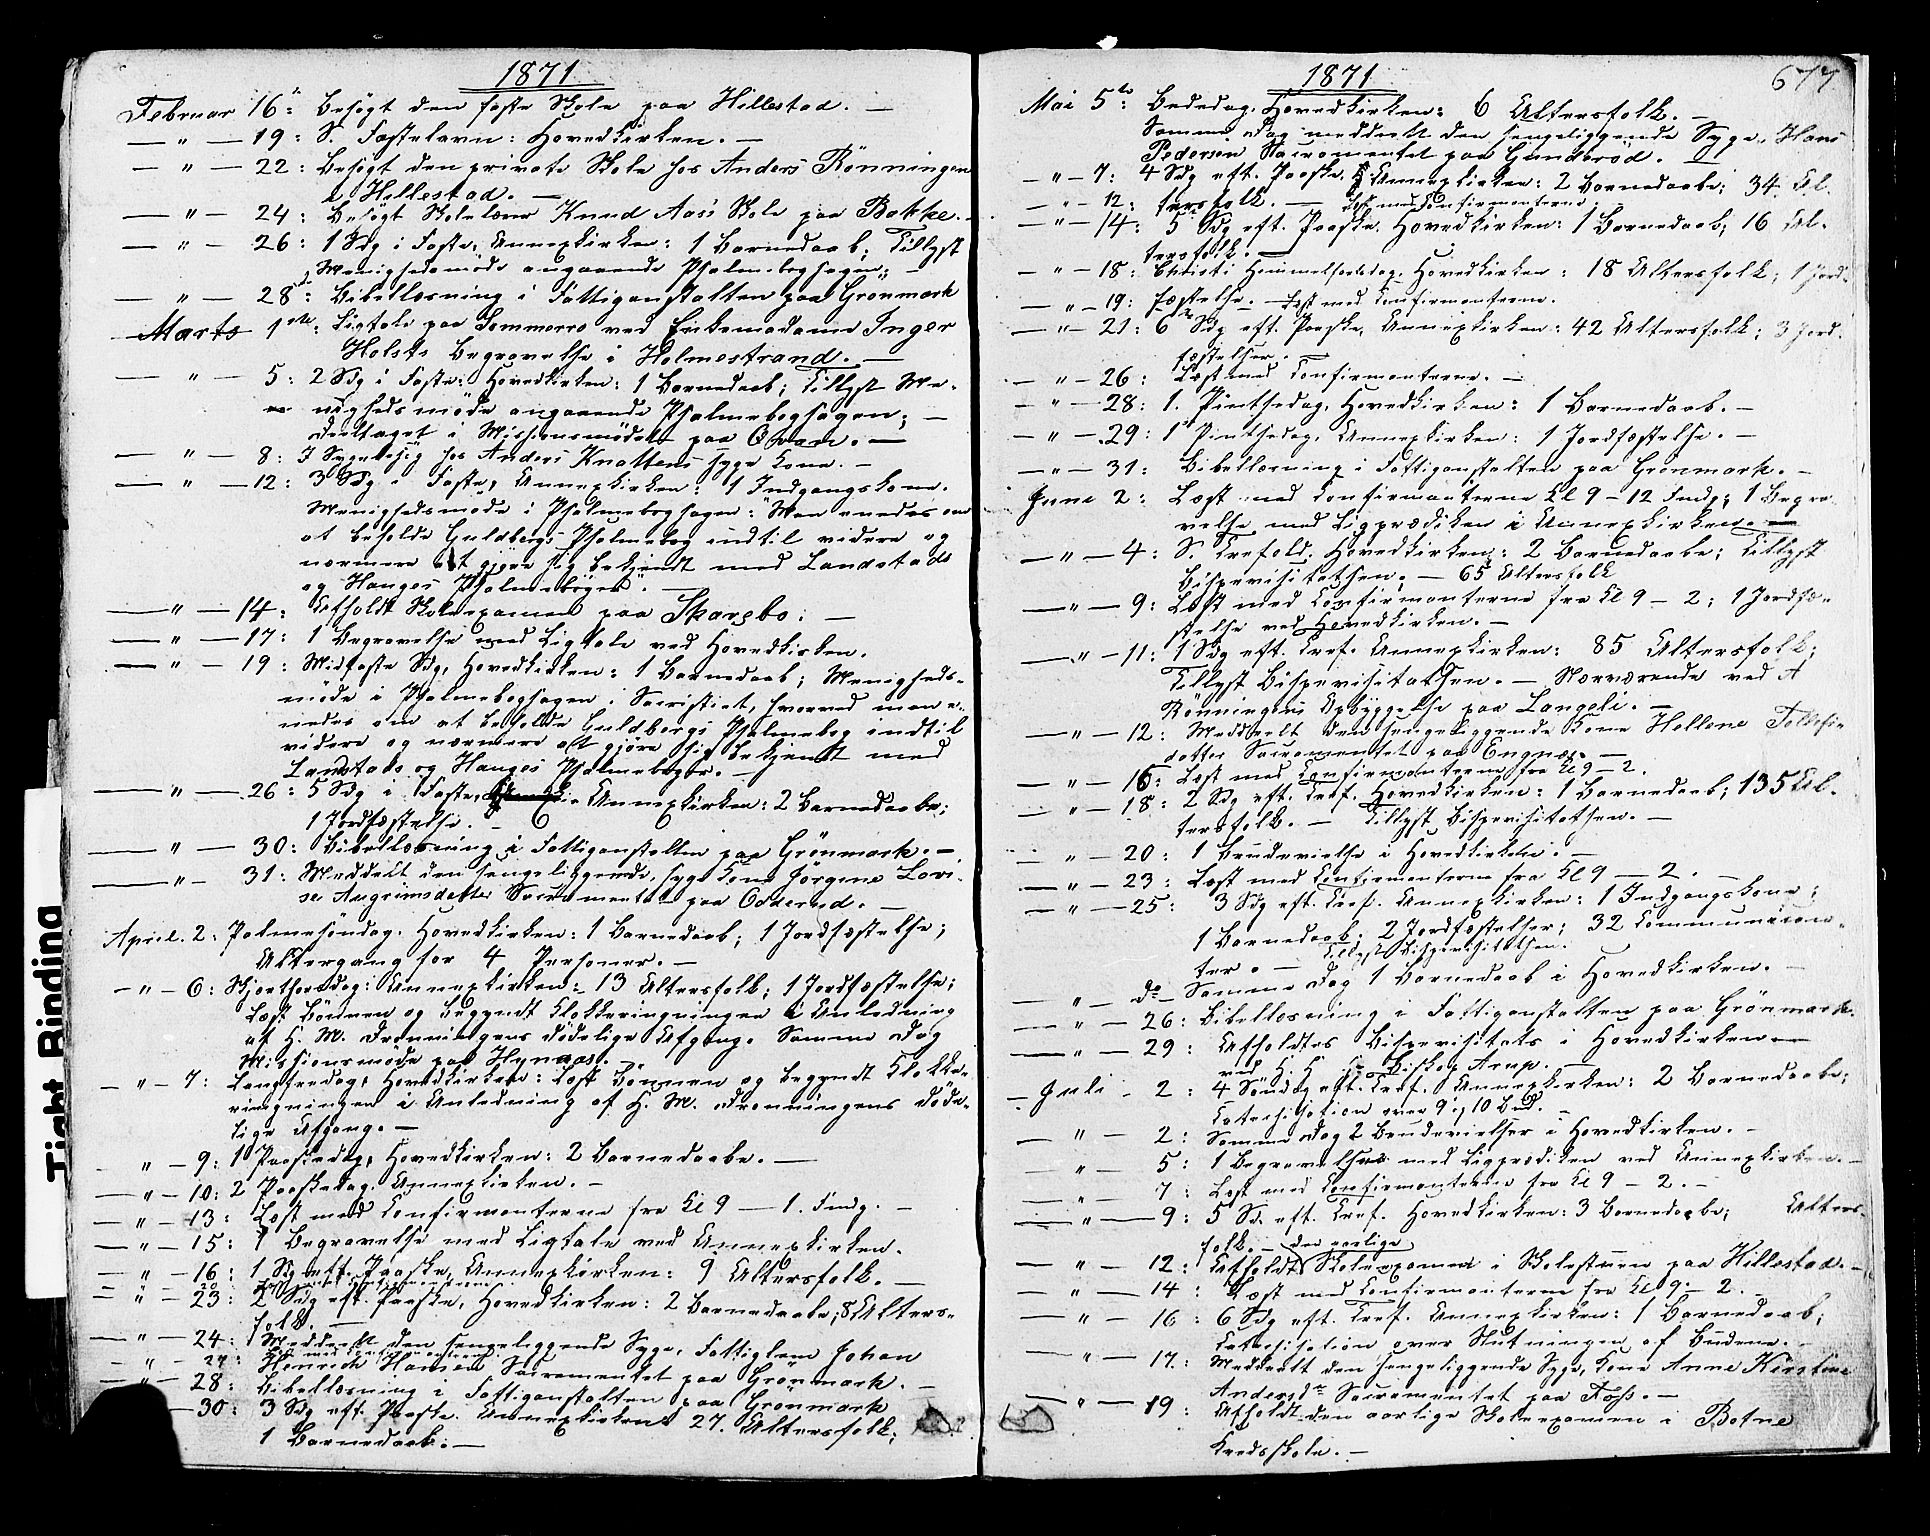 1871
Februar 16de: Besögt den faste Skole paa Hillestad. —
— " — 19: S. Fastelavn: Hovedkirken. —
— " — 22: Besögt den private Skole hos Anders Rönningen
i Hillestad. —
— " — 24: Besögt Skolelærer Knud Aas's Skole paa Bakke. —
— " — 26: 1 Sdg i Faste, Annexkirken: 1 Barnedaab; Tillyst
Menighedsmöde angaaende Psalmebogsagen; —
— " — 28de: Bibellæsning i Fattiganstalten paa Grönmark
Marts 1ste: Ligtale paa Sommerro ved Enkemadame Inger
Holsts Begravelse i Holmestrand. —
— " — 5: 2 Sdg i Faste: Hovedkirken: 1 Barnedaab; Tillyst Me-
nighedsmöde angaaende Psalmebogsagen; —
Deeltaget i Missionsmödet paa Qvam. —
— " — 8: I Sygebesög hos Anders Knattens syge Kone. —
— " — 12: 3 Sdg i Faste, Annexkirken: 1 Indgangskone.
Menighedsmöde i Psalmebogsagen: Man enedes om
at beholde Guldbergs Psalmebog indtil videre og
nærmere at gjöre sig bekjendt med Landstads
og Hauges Psalmebøger. —
— " — 14: Afholdt Skoleexamen paa Skaregbo: —
— " — 17: 1 Begravelse med Ligtale ved Hovedkirken.
— " — 19: Midfaste Sdg, Hovedkirken: 1 Barnedaab; Menigheds-
möde i Psalmebogsagen i Sacristiet, hvorved man e-
nedes om at beholde Guldbergs Psalmebog indtil
videre og nærmere at gjöre sig bekjendt med
Landstads og Hauges Psalmebøger. —
— " — 26: 5 Sdg i Faste, Annexkirken: 2 Barnedaabe;
1 Jordfæstelse. —
— " — 30: Bibellæsning i Fattiganstalten paa Grönmark. —
— " — 31: Meddelt den sengeliggende, syge Kone Jörgine Lovi-
se Angrimsdatter Sacramentet paa Odderud. —
April. 2: Palmesöndag. Hovedkirken: 1 Barnedaab; 1 Jordfæstelse;
Altergang for 4 Personer. —
— " — 6: Skjærthorsdag: Annexkirken: 13 Altersfolk; 1 Jordfæstelse;
Læst Bönnen og begyndt Klokkeringningen i Anledning
af H. M. Dronningens dödelige Afgang. Samme Dag
Missionsmöde paa Hynaas. —
— " — 7: Langfredag, Hovedkirken: Læst Bönnen og begyndt Klokke-
ringningen i Anledning af H. M. Dronningens döde-
lige Afgang. —
" — 9: 1 Paaskedag, Hovedkirken: 2 Barnedaabe. —
— " — 10: 2 Paaskedag. Annexkirken. —
— " — 13: Læst med Confirmanterne fra Kl 9 — 1. Fmdg. —
— " — 15: 1 Begravelse med Ligtale ved Annexkirken.
— " — 16: 1 Sdg eft. Paaske, Annexkirken: 9 Altersfolk. —
— " — 20: Læst med Confirmanterne
— " — 23: 2 Sdg eft. Paaske, Hovedkirken: 2 Barnedaabe; 8 Alters-
folk. —
— " — 24: Meddeelt den sengeliggende Syge, Fattiglem Johan
— " — 27: Læst med Confirmanterne
Henrich Hansen Sacramentet paa Grönmark. —
" — 28: Bibellæsning i Fattiganstalten paa Grönmark
— 30: 3 Sdg eft. Paaske. Annexkirken: 27. Altersfolk;
1 Barnedaab. —
1871
677
Mai 5te: Bededag, Hovedkirken: 6 Altersfolk. —
Samme Dag meddeelt den sengeliggende Syge, Hans
Pedersen Sacramentet paa Gunderöd. —
— " — 7: 4 Sdg eft. Paaske, Annexkirken: 2 Barnedaabe; 34 Al-
tersfolk. —
— " — 12: Læst med Confirmanterne.
— " — 14: 5 Sdg eft. Paaske. Hovedkirken: 1 Barnedaab; 16 Al-
tersfolk. —
— " — 18: Christi Himmelfartsdag, Hovedkirken: 18 Altersfolk; 1 Jord-
fæstelse. —
— " — 19: Læst med Confirmanterne.
— " — 21: 6 Sdg eft. Paaske, Annexkirken: 42 Altersfolk; 3 Jord-
fæstelser. —
— " — 26: Læst med Confirmanterne. —
— " — 28: 1. Pintsedag, Hovedkirken: 1 Barnedaab. —
— " — 29: 1 Pintsedag, Annexkirken: 1 Jordfæstelse. —
— " — 31: Bibellæsning i Fattiganstalten paa Grönmark. —
Juni 2: Læst med Confirmanterne Kl 9 — 12 Fmdg; 1 Begra-
velse med Ligprædiken i Annexkirken. —
— " — 4: S. Trefold. Hovedkirken: 2 Barnedaabe; Tillyst
Bispevisitatsen. — 65 Altersfolk
— " — 9: Læst med Confirmanterne fra Kl 9 — 2; 1 Jordfæ-
stelse ved Hovedkirken. —
— " — 11: 1 Sdg eft. Tref. Annexkirken: 85 Altersfolk;
Tillyst Bispevisitatsen. — Nærværende ved A
Rönningens Opbyggelse paa Langeli. —
— " — 12: Meddeelt den sengeliggende Kone Hellene Tollefs-
datter Sacramentet paa Engnæs. —
" — 16: Læst med Confirmanterne fra Kl 9 — 2.
" — 18: 2 Sdg eft. Tref. Hovedkirken: 1 Barnedaab; 135 Al-
tersfolk. — Tillyst Bispevisitatsen. —
" — 20: 1 Brudevielse i Hovedkirken. —
— " — 23: Læst med Confirmanterne fra Kl 9 — 2. —
— " — 25: 3 Sdg eft. Tref. Annexkirken: 1 Indgangskone;
1 Barnedaab; 2 Jordfæstelser; 32 Communican-
ter. — Tillyst Bispevisitatsen.
— " — do — Samme Dag 1 Barnedaab i Hovedkirken. —
— " — 26: Bibellæsning i Fattiganstalten paa Grönmark.
— " — 29: Afholdtes Bispevisitats i Hovedkirken
ved Biskop Arup. —
— Juli — 2: 4 Söndag eft. Tref. Annexkirken: 2 Barnedaabe;
Catechisation over 9 og 10 Bud. —
— " — 2: Samme Dag 2 Brudevielser i Hovedkirken. —
" — 5: 1 Begravelse med Ligprædiken ved Annexkirken. —
" — 7: Læst med Confirmanterne fra Kl 9 — 2. —
— " — 9: 5 Sd. eft. Tref. Hovedkirken: 3 Barnedaabe; Alters-
folk. —
" — 12: Afholdt den aarlige Skoleexamen i Skolestuen paa Hillestad. —
" — 14: Læst med Confirmanterne fra Kl 9 — 2. —
" — 16: 6 Sdg eft. Tref. Annexkirken: 1 Barnedaab;
Catechisation over Slutningen af Budene. —
" — 17: Meddeelt den sengeliggende Syge, Kone Anne Kirstine
Andersdr Sacramentet paa Foss. —
" — 19: Afholdt den aarlige Skoleexamen i Botne
Kredsskole. —
Tight Binding